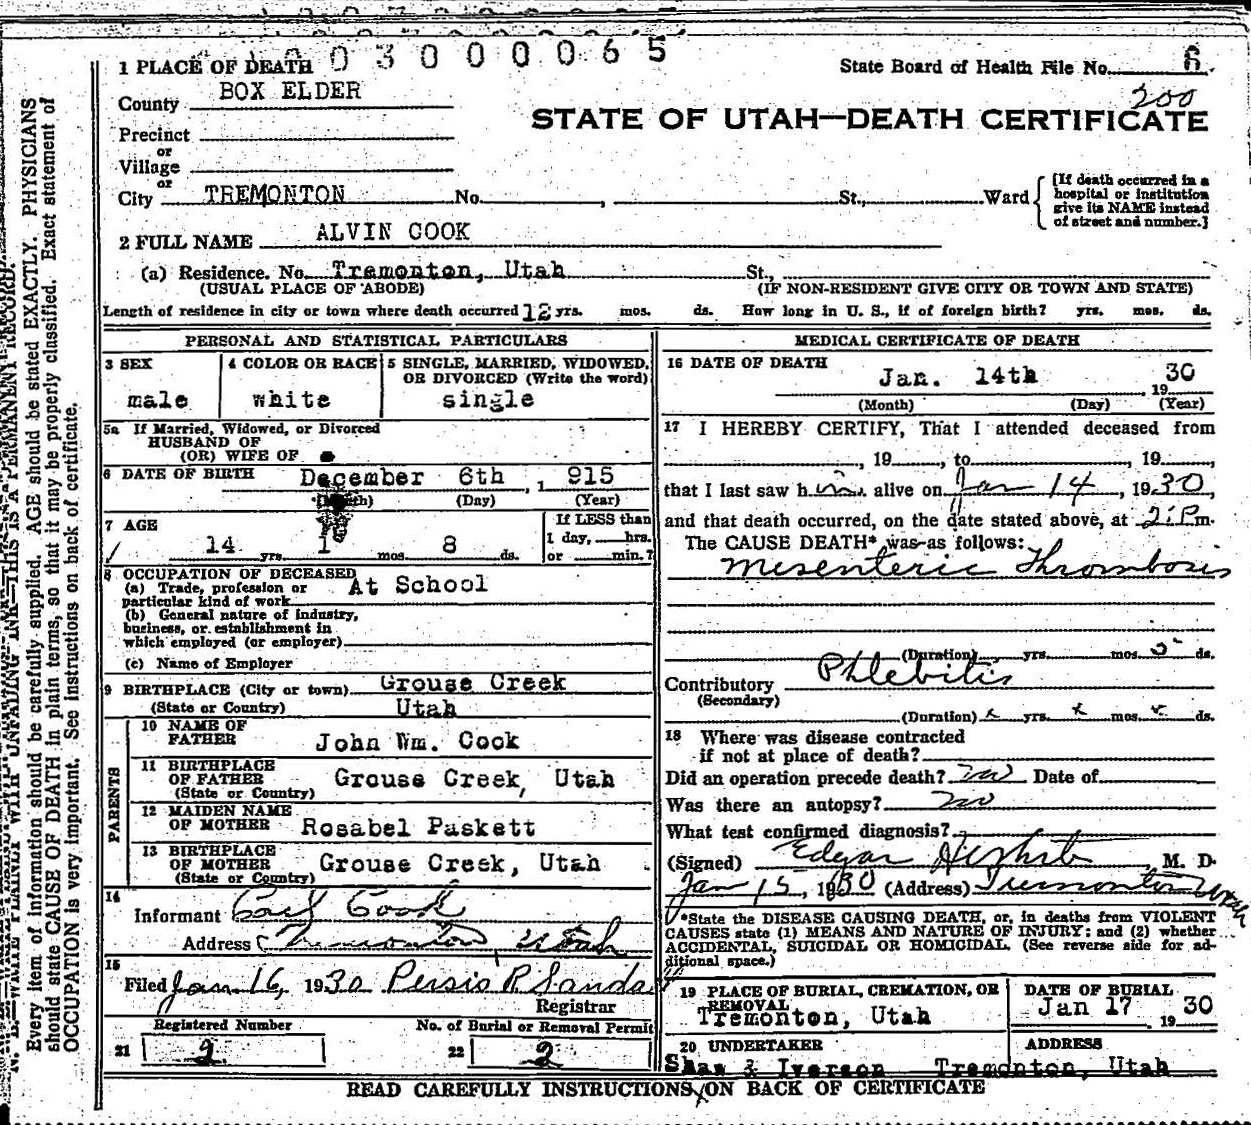 0 3 0 0 0 0 6 5
1 PLACE OF DEATH
State Board of Health File No. 6
County BOX ELDER
200
STATE OF UTAH—DEATH CERTIFICATE
Precinct
or
Village
or
City TREMONTON No. , St., Ward
[If death occurred in a
hospital or institution
give its NAME instead
of street and number.]
2 FULL NAME ALVIN COOK
(a) Residence. No. Tremonton, Utah St.,
(USUAL PLACE OF ABODE) (IF NON-RESIDENT GIVE CITY OR TOWN AND STATE)
Length of residence in city or town where death occurred 12 yrs. mos. ds. How long in U. S., if of foreign birth? yrs. mos. ds.
PERSONAL AND STATISTICAL PARTICULARS
3 SEX
male
4 COLOR OR RACE
white
5 SINGLE, MARRIED, WIDOWED,
OR DIVORCED (Write the word)
single
5a If Married, Widowed, or Divorced
HUSBAND OF
(OR) WIFE OF
6 DATE OF BIRTH December 6th , 1 915
(Month) (Day) (Year)
7 AGE
14 yrs. 1 mos. 8 ds.
If LESS than
1 day, hrs.
or min.?
8 OCCUPATION OF DECEASED
(a) Trade, profession or At School
particular kind of work
(b) General nature of industry,
business, or establishment in
which employed (or employer)
(c) Name of Employer
9 BIRTHPLACE (City or town) Grouse Creek
(State or Country) Utah
PARENTS
10 NAME OF
FATHER John Wm. Cook
11 BIRTHPLACE
OF FATHER Grouse Creek, Utah
(State or Country)
12 MAIDEN NAME
OF MOTHER Rosabel Paskett
13 BIRTHPLACE
OF MOTHER Grouse Creek, Utah
(State or Country)
14
Informant Cook
Address Tremonton, Utah
15
Filed Jan 16, 1930 Persis R Sanda
Registrar
Registered Number
21 2
No. of Burial or Removal Permit
22 2
MEDICAL CERTIFICATE OF DEATH
16 DATE OF DEATH
Jan. 14th 19 30
(Month) (Day) (Year)
17 I HEREBY CERTIFY, That I attended deceased from
, 19 , to , 19 ,
that I last saw him alive on Jan 14, 1930,
and that death occurred, on the date stated above, at 2:Pm.
The CAUSE DEATH* was as follows:
Mesenteric Thrombosis
(Duration) yrs. mos. 5 ds.
Contributory Phlebitis
(Secondary)
(Duration) x yrs. x mos. x ds.
18 Where was disease contracted
if not at place of death?
Did an operation precede death? no Date of
Was there an autopsy? no
What test confirmed diagnosis?
(Signed) Edgar , M. D.
Jan 15, 1930 (Address) Tremonton Utah
*State the DISEASE CAUSING DEATH, or, in deaths from VIOLENT
CAUSES state (1) MEANS AND NATURE OF INJURY; and (2) whether
ACCIDENTAL, SUICIDAL OR HOMICIDAL. (See reverse side for ad-
ditional space.)
19 PLACE OF BURIAL, CREMATION, OR
REMOVAL
Tremonton, Utah
DATE OF BURIAL
Jan 17 19 30
20 UNDERTAKER
Shaw & Iverson
ADDRESS
Tremonton, Utah
READ CAREFULLY INSTRUCTIONS ON BACK OF CERTIFICATE
N. B.—WRITE PLAINLY WITH UNFADING INK—THIS IS A PERMANENT RECORD.
Every item of information should be carefully supplied. AGE should be stated EXACTLY. PHYSICIANS
should state CAUSE OF DEATH in plain terms, so that it may be properly classified. Exact statement of
OCCUPATION is very important. See instructions on back of certificate.